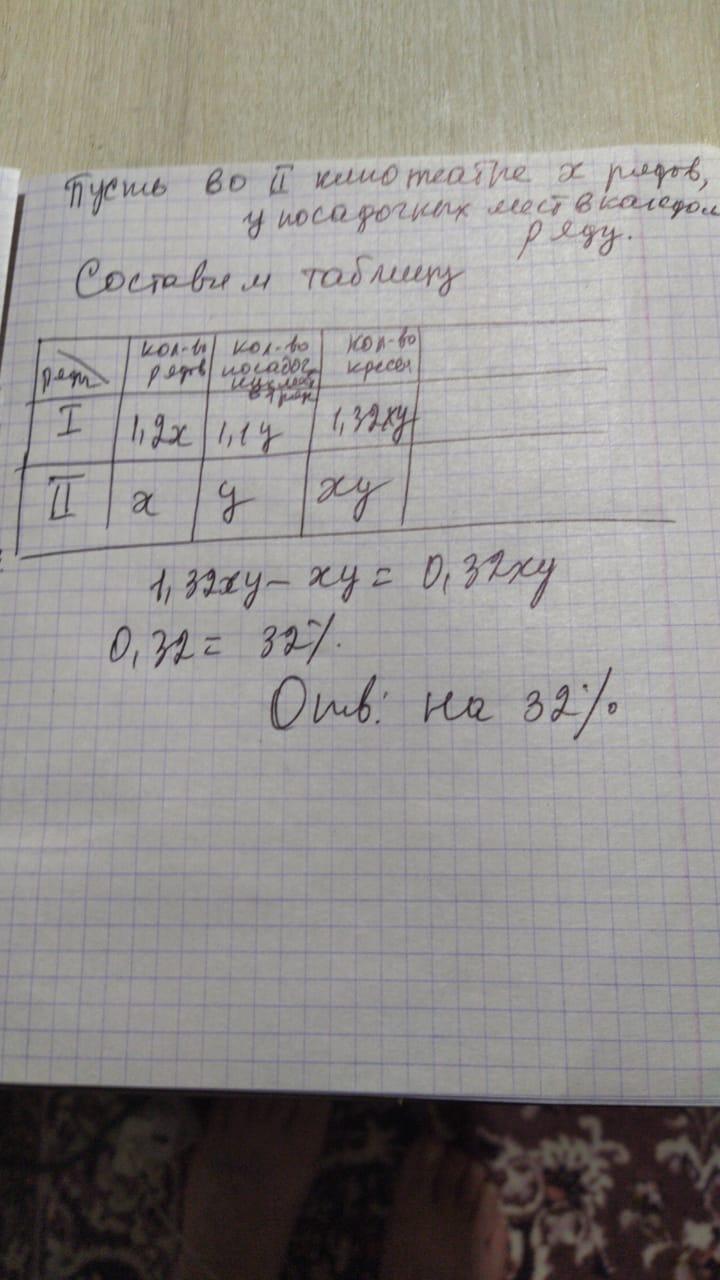 Пусть во II кинотеатре x рядов,
y посадочных мест в каждом
ряду.
Составим таблицу
ряды кол-во рядов кол-во посадоч. мест в 1 ряду кол-во кресел
I 1,2x 1,1y 1,32xy
II x y xy
1,32xy - xy = 0,32xy
0,32 = 32%.
Отв: на 32%